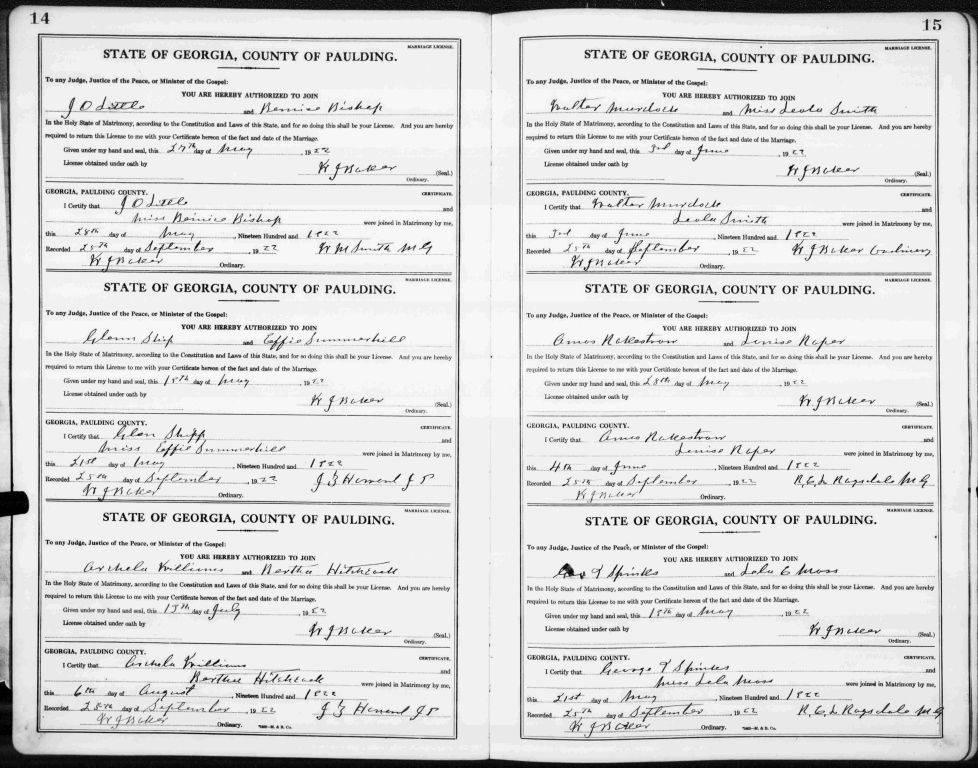 14
MARRIAGE LICENSE.
STATE OF GEORGIA, COUNTY OF PAULDING.
To any Judge, Justice of the Peace, or Minister of the Gospel:
YOU ARE HEREBY AUTHORIZED TO JOIN
J O Little and Bernice Bishop
In the Holy State of Matrimony, according to the Constitution and Laws of this State, and for so doing this shall be your License. And you are hereby
required to return this License to me with your Certificate hereon of the fact and date of the Marriage.
Given under my hand and seal, this 27th day of May, 1922
License obtained under oath by W J Baker (Seal.)
Ordinary.
GEORGIA, PAULDING COUNTY. CERTIFICATE.
I Certify that J O Little and
Miss Bernice Bishop were joined in Matrimony by me,
this 28th day of May, Nineteen Hundred and 1922
Recorded 25th day of September, 1922 W M Smith M G
W J Baker Ordinary.
MARRIAGE LICENSE.
STATE OF GEORGIA, COUNTY OF PAULDING.
To any Judge, Justice of the Peace, or Minister of the Gospel:
YOU ARE HEREBY AUTHORIZED TO JOIN
Glenn Ship and Effie Summerhill
In the Holy State of Matrimony, according to the Constitution and Laws of this State, and for so doing this shall be your License. And you are hereby
required to return this License to me with your Certificate hereon of the fact and date of the Marriage.
Given under my hand and seal, this 18th day of May, 1922
License obtained under oath by W J Baker (Seal.)
Ordinary.
GEORGIA, PAULDING COUNTY. CERTIFICATE.
I Certify that Glen Shipp and
Miss Effie Summerhill were joined in Matrimony by me,
this 21st day of May, Nineteen Hundred and 1922
Recorded 25th day of September, 1922 J P
W J Baker Ordinary.
MARRIAGE LICENSE.
STATE OF GEORGIA, COUNTY OF PAULDING.
To any Judge, Justice of the Peace, or Minister of the Gospel:
YOU ARE HEREBY AUTHORIZED TO JOIN
Archela Williams and Bertha Hitchcock
In the Holy State of Matrimony, according to the Constitution and Laws of this State, and for so doing this shall be your License. And you are hereby
required to return this License to me with your Certificate hereon of the fact and date of the Marriage.
Given under my hand and seal, this 15th day of July, 1922
License obtained under oath by W J Baker (Seal.)
Ordinary.
GEORGIA, PAULDING COUNTY. CERTIFICATE.
I Certify that Archela Williams and
Bertha Hitchcock were joined in Matrimony by me,
this 6th day of August, Nineteen Hundred and 1922
Recorded 25th day of September, 1922 J P
W J Baker Ordinary.
15
MARRIAGE LICENSE.
STATE OF GEORGIA, COUNTY OF PAULDING.
To any Judge, Justice of the Peace, or Minister of the Gospel:
YOU ARE HEREBY AUTHORIZED TO JOIN
Walter Murdock and Miss Leola Smith
In the Holy State of Matrimony, according to the Constitution and Laws of this State, and for so doing this shall be your License. And you are hereby
required to return this License to me with your Certificate hereon of the fact and date of the Marriage.
Given under my hand and seal, this 3rd day of June, 1922
License obtained under oath by W J Baker (Seal.)
Ordinary.
GEORGIA, PAULDING COUNTY. CERTIFICATE.
I Certify that Walter Murdock and
Leola Smith were joined in Matrimony by me,
this 3rd day of June, Nineteen Hundred and 1922
Recorded 25th day of September, 1922 W J Baker Ordinary
W J Baker Ordinary.
MARRIAGE LICENSE.
STATE OF GEORGIA, COUNTY OF PAULDING.
To any Judge, Justice of the Peace, or Minister of the Gospel:
YOU ARE HEREBY AUTHORIZED TO JOIN
Amos Rakestraw and Louise Roper
In the Holy State of Matrimony, according to the Constitution and Laws of this State, and for so doing this shall be your License. And you are hereby
required to return this License to me with your Certificate hereon of the fact and date of the Marriage.
Given under my hand and seal, this 28th day of May, 1922
License obtained under oath by W J Baker (Seal.)
Ordinary.
GEORGIA, PAULDING COUNTY. CERTIFICATE.
I Certify that Amos Rakestraw and
Louise Roper were joined in Matrimony by me,
this 4th day of June, Nineteen Hundred and 1922
Recorded 25th day of September, 1922 Ragsdale M G
W J Baker Ordinary.
MARRIAGE LICENSE.
STATE OF GEORGIA, COUNTY OF PAULDING.
To any Judge, Justice of the Peace, or Minister of the Gospel:
YOU ARE HEREBY AUTHORIZED TO JOIN
T Spinks and Lola C Moss
In the Holy State of Matrimony, according to the Constitution and Laws of this State, and for so doing this shall be your License. And you are hereby
required to return this License to me with your Certificate hereon of the fact and date of the Marriage.
Given under my hand and seal, this 18th day of May, 1922
License obtained under oath by W J Baker (Seal.)
Ordinary.
GEORGIA, PAULDING COUNTY. CERTIFICATE.
I Certify that George T Spinks and
Miss Lola Moss were joined in Matrimony by me,
this 21st day of May, Nineteen Hundred and 1922
Recorded 25th day of September, 1922 Ragsdale M G
W J Baker Ordinary.